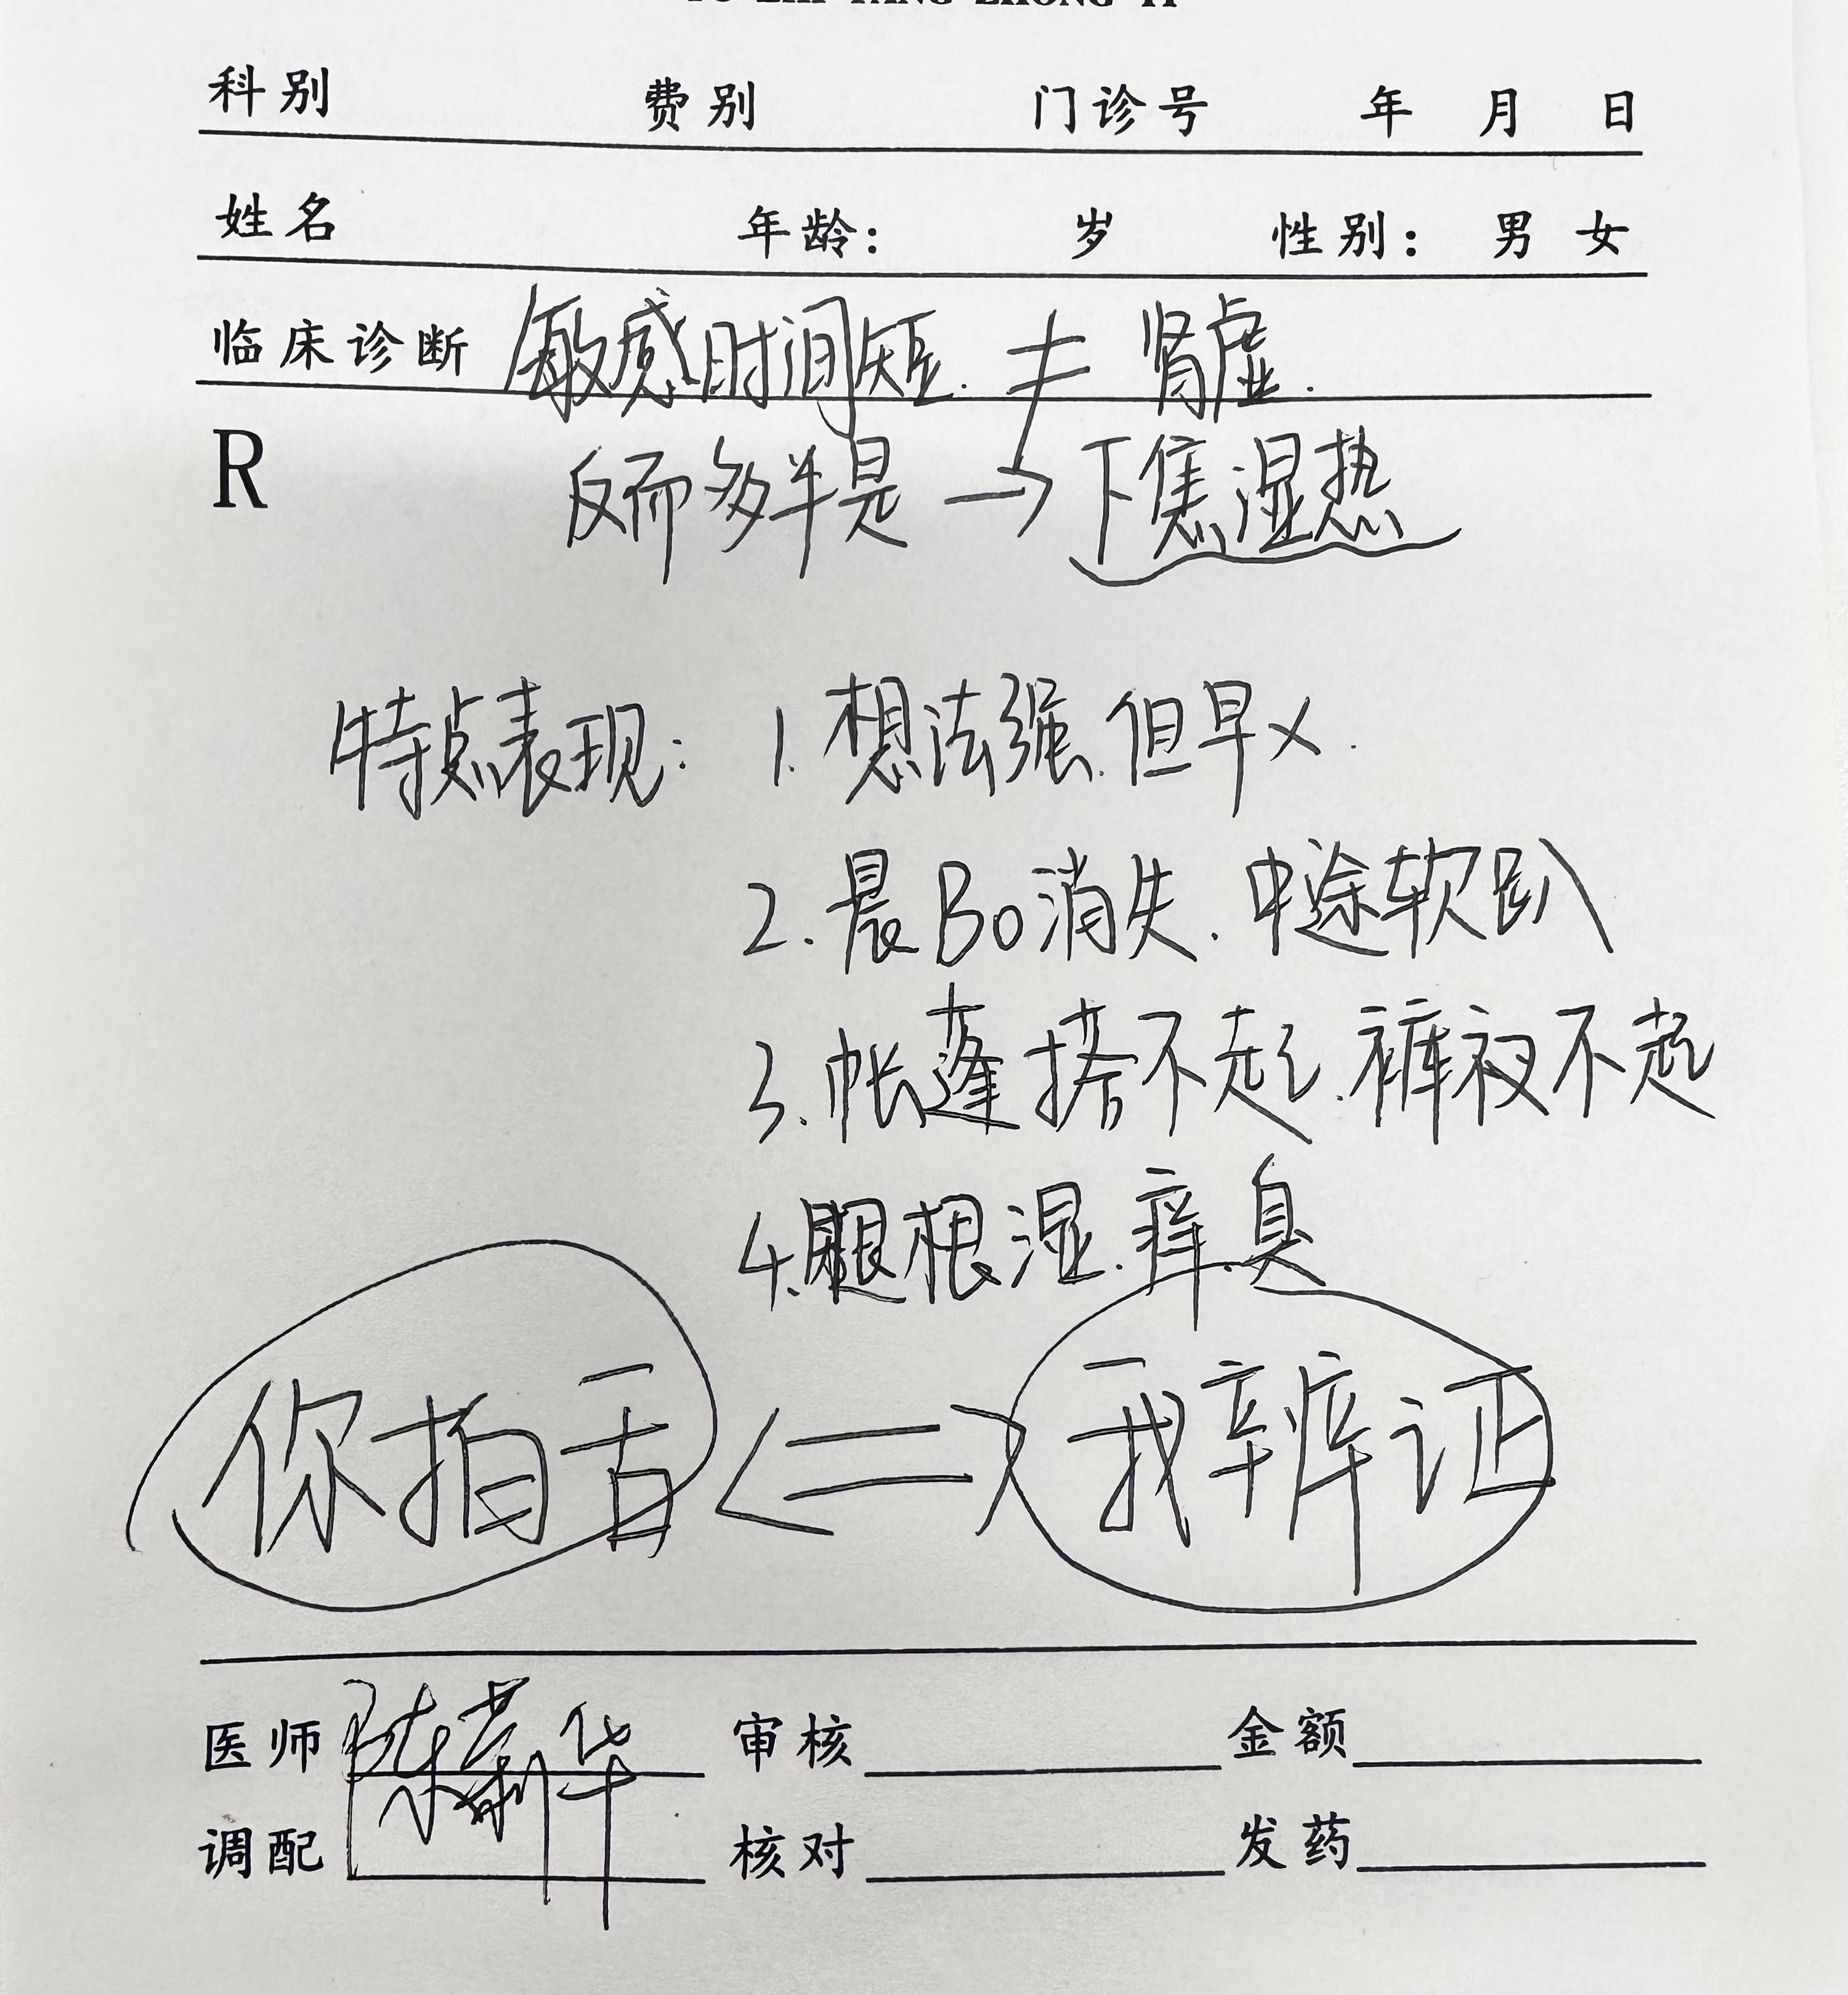 科别 费别 门诊号 年 月 日
姓名 年龄: 岁 性别: 男 女
临床诊断 敏感时间短. ≠ 肾虚.
R 反而多半是 → 下焦湿热
特点表现: 1. 想法强.但早x.
2. 晨Bo消失.中途软趴
3. 帐蓬搭不起.裤衩不起
4. 腿根湿.痒.臭
你拍舌 <=> 我辨证
医师 陈 华 审核 金额
调配 核对 发药